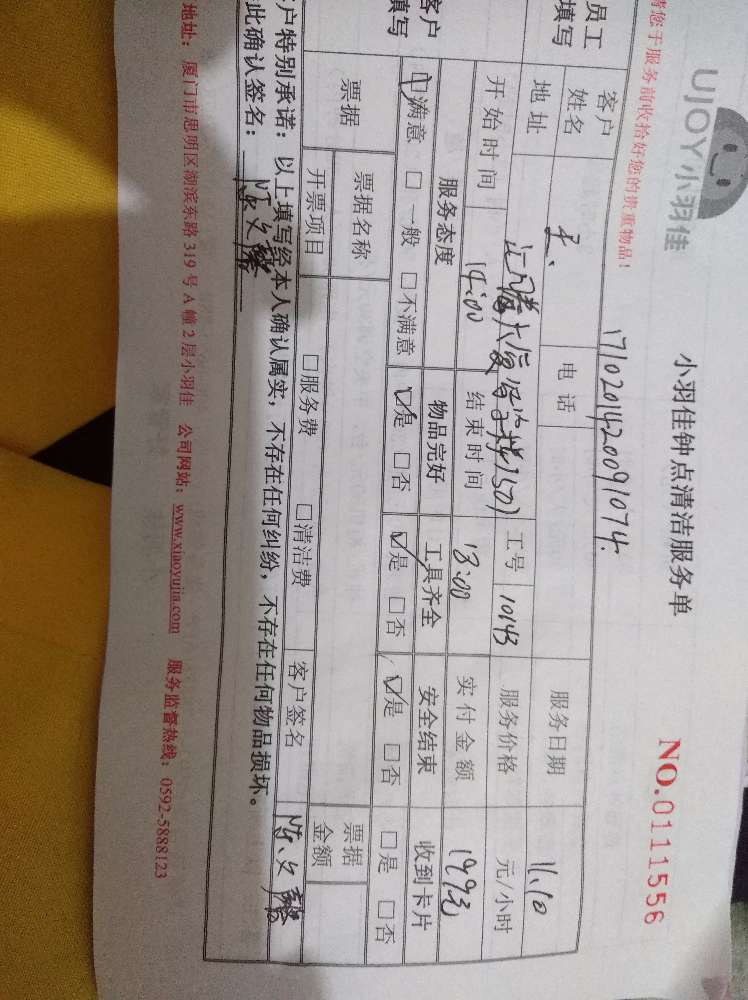 UJOY小羽佳
小羽佳钟点清洁服务单
NO.0111556
请您于服务前收拾好您的贵重物品!
1710201420091074.
员工填写
客户姓名
电话
服务日期 11.10
地址
工号 10143
服务价格 元/小时
开始时间 14:00
结束时间 18:00
实付金额
客户填写
服务态度 物品完好 工具齐全 安全结束 收到卡片
☑满意 □一般 □不满意 ☑是 □否 ☑是 □否 ☑是 □否 □是 □否
票据
票据名称
票据金额
开票项目 □服务费 □清洁费 客户签名
客户特别承诺:以上填写经本人确认属实,不存在任何纠纷,不存在任何物品损坏。
此确认签名:
地址:厦门市思明区湖滨东路319号A幢2层小羽佳 公司网站:www.xiaoyujia.com 服务监督热线:0592-5888123